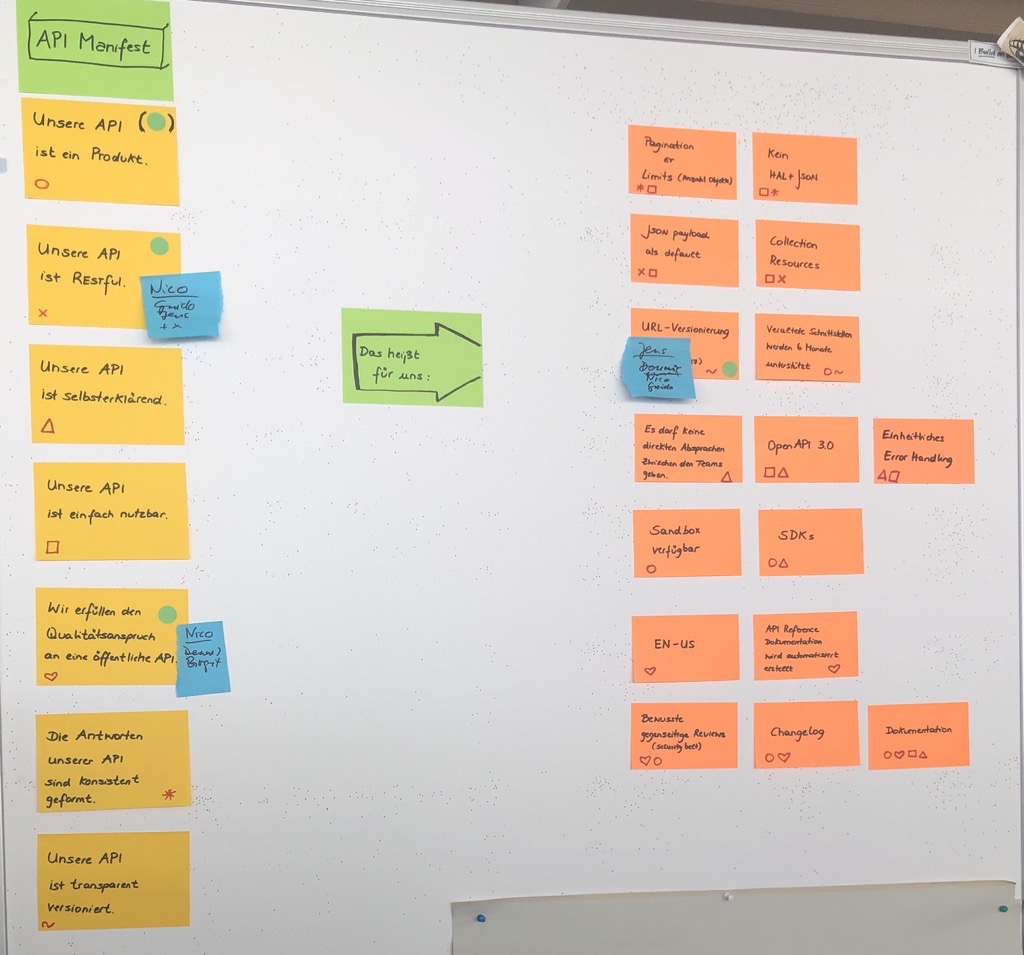 API Manifest
Unsere API
ist ein Produkt.
Unsere API
ist RESTful.
Nico
Guido
Jens
Unsere API
ist selbsterklärend.
Unsere API
ist einfach nutzbar.
Wir erfüllen den
Qualitätsanspruch
an eine öffentliche API.
Nico
Birgit
Die Antworten
unserer API
sind konsistent
geformt.
Unsere API
ist transparent
versioniert.
Das heißt
für uns:
Pagination
er
Limits (Anzahl Objekte)
Kein
HAL+JSON
JSON payload
als default
Collection
Resources
URL-Versionierung
Jens
Nico
Guido
Veraltete Schnittstellen
werden 6 Monate
unterstützt
Es darf keine
direkten Absprachen
zwischen den Teams
geben.
OpenAPI 3.0
Einheitliches
Error Handling
Sandbox
verfügbar
SDKs
EN-US
API Reference
Dokumentation
wird automatisiert
erstellt
Bewusste
gegenseitige Reviews
Changelog
Dokumentation
I Build